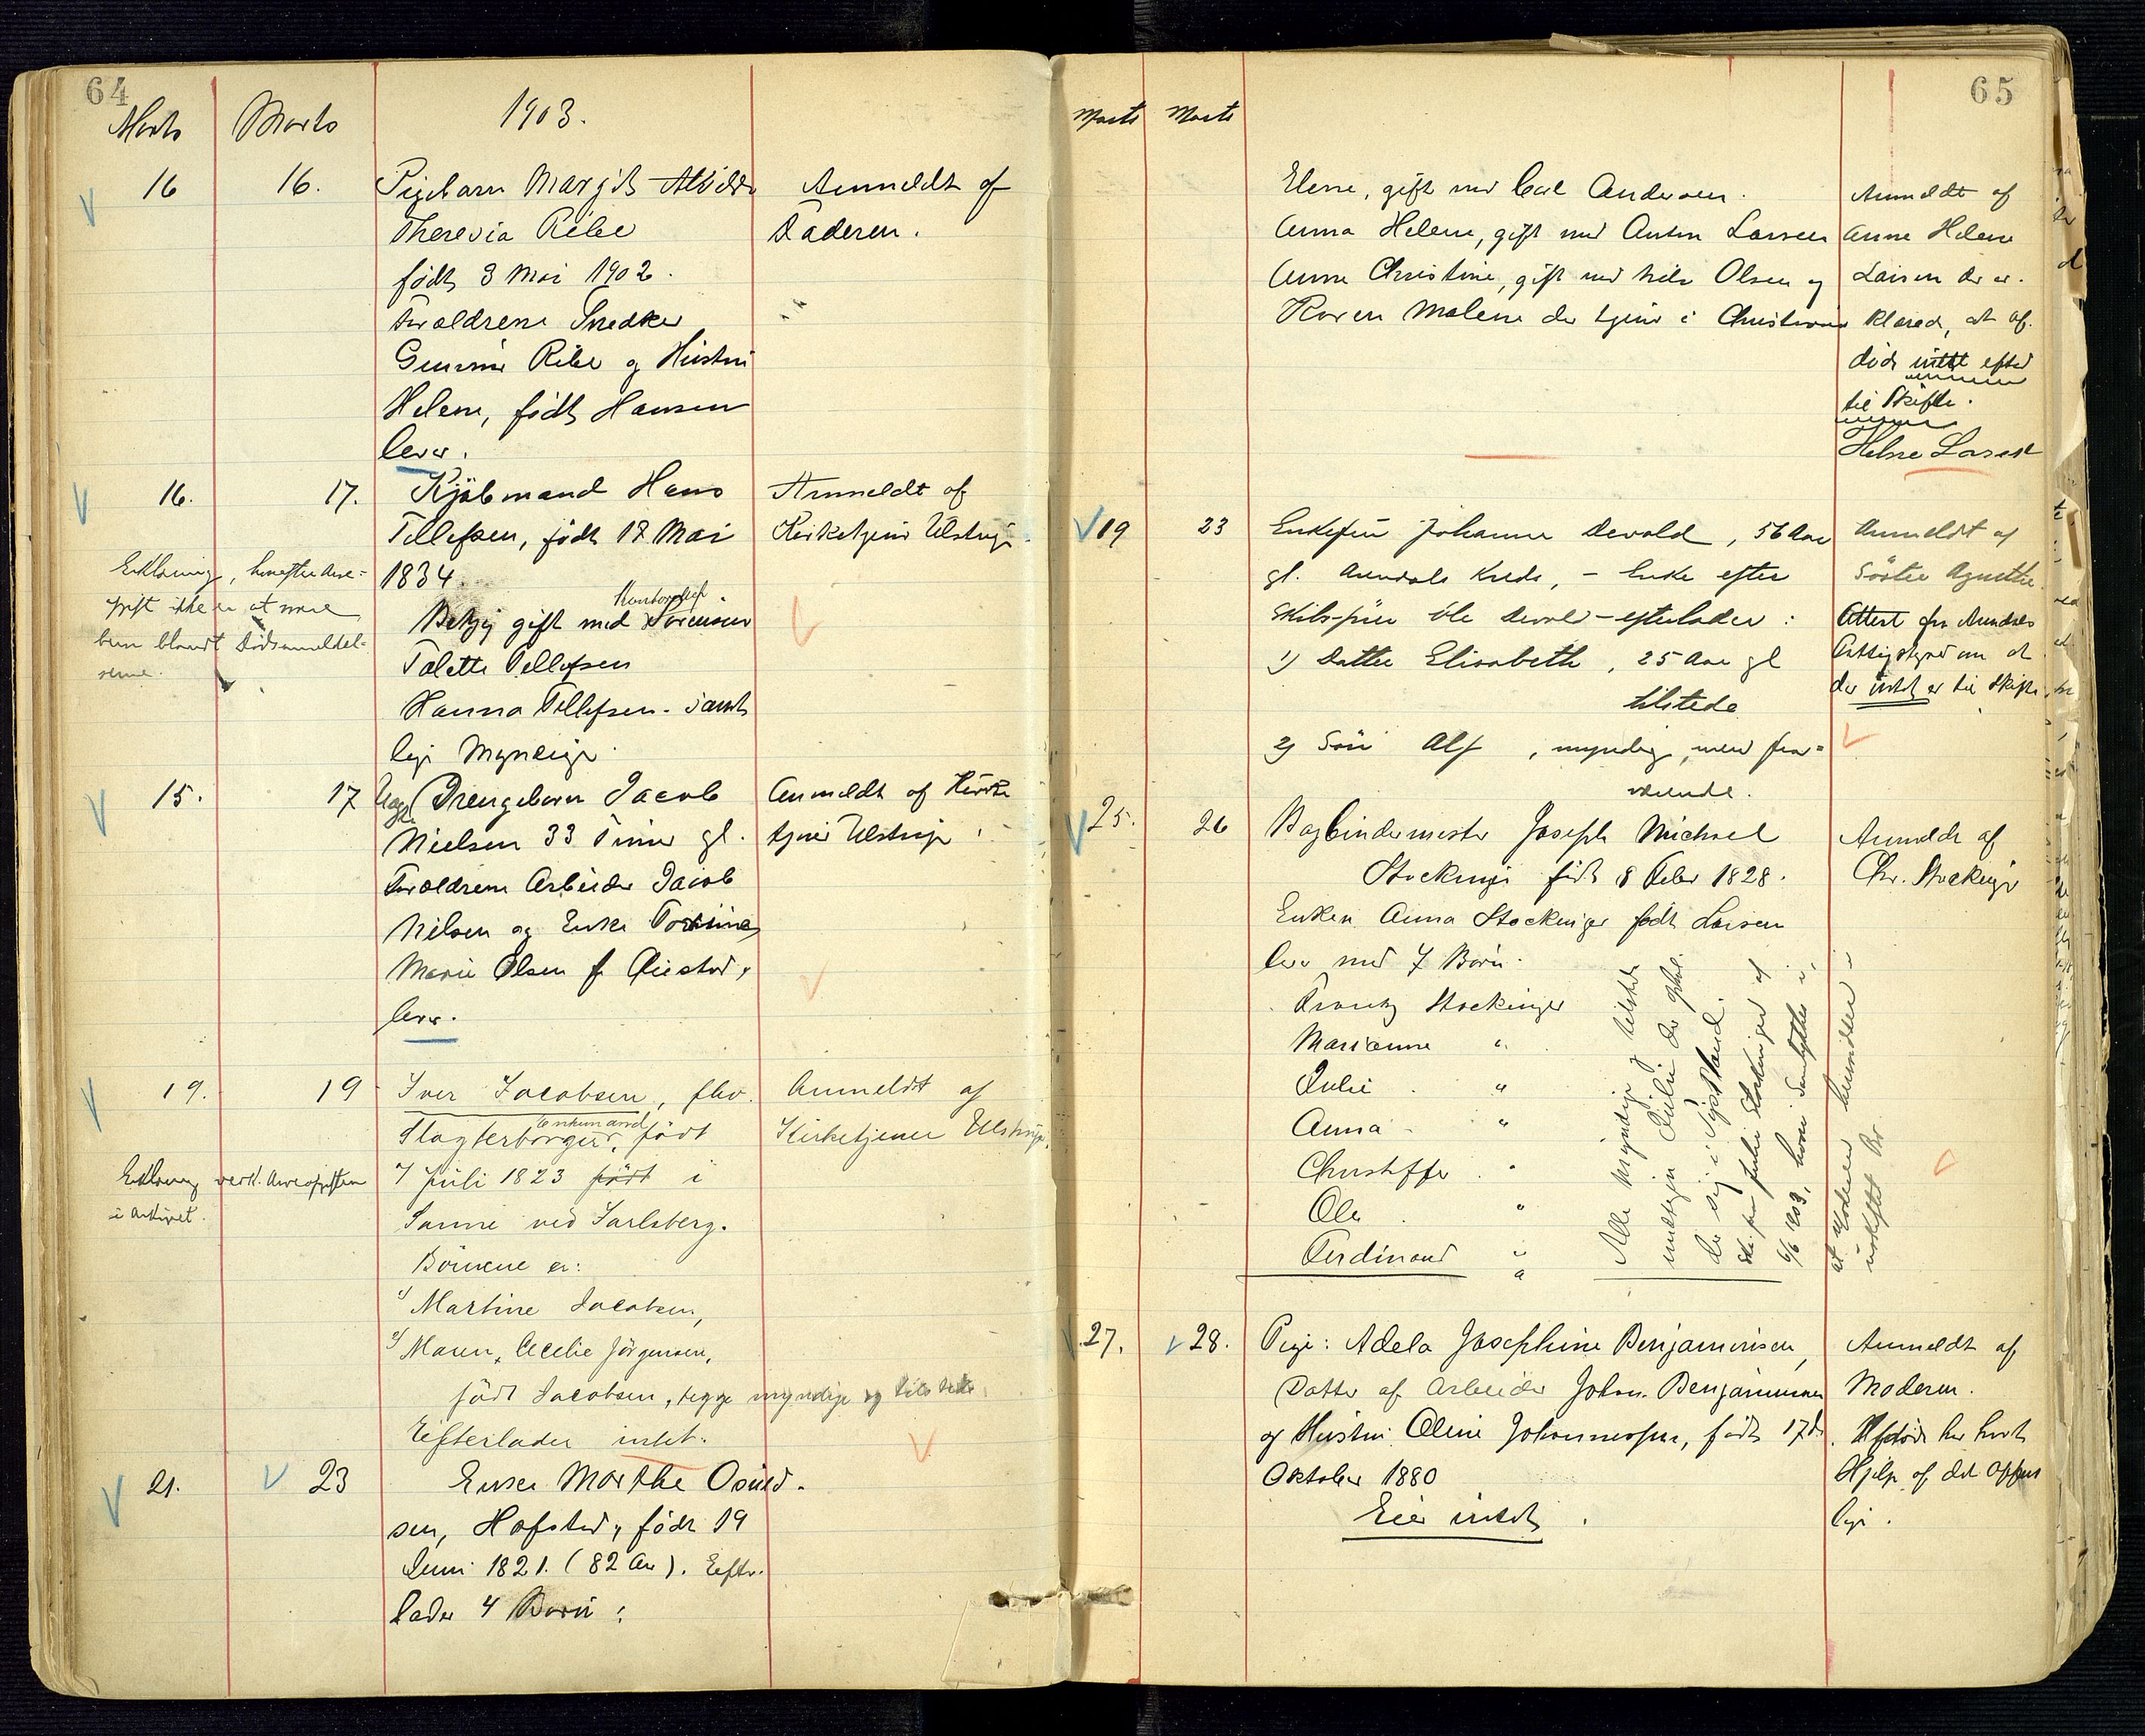 64
Marts Marts 1903.
16 16. Pigebarn Margit Alvilda Anmeldt af
Theresia Ribe Faderen.
født 3 Mai 1902.
Forældrene Snedker
Ribe og Hustru
Helene, født Hansen
lever.
16. 17. Kjøbmand Hans Anmeldt af
Tellefsen, født 17 Mai Kirketjener Ulstrup.
Erklæring, hvorefter Arve-
1834.
gift ikke er at
Kontorchef
Betzy gift med Sørensen
bern blandt Dødsanmeldel-
Talette Tellefsen
serne.
Hanna Tellefsen - samt-
lige Myndige.
15. 17 Uægte Drengebarn Jacob Anmeldt af Kirke-
Nielsen 33 Timer gl. tjener Ulstrup.
Forældrene Arbeider Jacob
Nilsen og Enke
Marie Olsen f.
lever.
19. 19 Iver Jacobsen, fhv. Anmeldt af
Enkemand
Slagterborger, født Kirketjener Ulstrup.
Erklæring vedk. Arveafgiften
7 Juli 1823 født i
i Arkivet.
Sanne ved Jarlsberg.
Börnene er:
1) Martine Jacobsen,
2) Maren Cecilie Jörgensen,
født Jacobsen, begge myndige og tilstede.
Efterlader intet.
21. 23 Enke Marthe Osuld-
sen, Hofsted, født 19
Juni 1821. (82 Aar). Efter-
lader 4 Børn:
65
Marts Marts
Elene, gift med Carl Andersen. Anmeldt af
Anna Helene, gift med Anton Larsen Anne Helene
Anne Christine, gift med Nils Olsen og Larsen der er-
Karen Malene der tjener i Christiania klæred, at af-
døde intet efterl
til Skifte.
Helene Larsen
19 23 Enkefru Johanne Devold, 56 Aar Anmeldt af
gl. Arendals Kreds, - Enke efter Søster Agnethe
Skibsfører Ole Devold - efterlader: Attest fra Arendals
1) Datter Elisabeth, 25 Aar gl Fattigstyre om at
tilstede der intet er til Skifte
2) Søn Alf, myndig, men fra-
værende.
25. 26 Bogbindermester Joseph Michael Anmeldt af
Stockinger født 8 Febr 1828. Chr. Stockinger
Enken Anna Stockinger født Larsen
lever med 7 Børn.
Frantz Stockinger
Marianne "
Julie "
Anna "
Christoffer "
Ole "
Ferdinand "
Alle myndige og tilstede
undtagen Julie der
der sig i Tydskland.
fra Julie Stockinger af
6/6 1903, hvori Samtykke i,
at Moderen hensidder i
uskiftet Bo
27. 28. Pige: Adela Josephine Benjaminsen, Anmeldt af
Datter af Arbeider Johan Benjaminsen Moderen.
og Hustru Oline Johannessen, født 17de Afdøde har havt
Oktober 1880 Hjælp af det Offent-
Eier intet. lige.